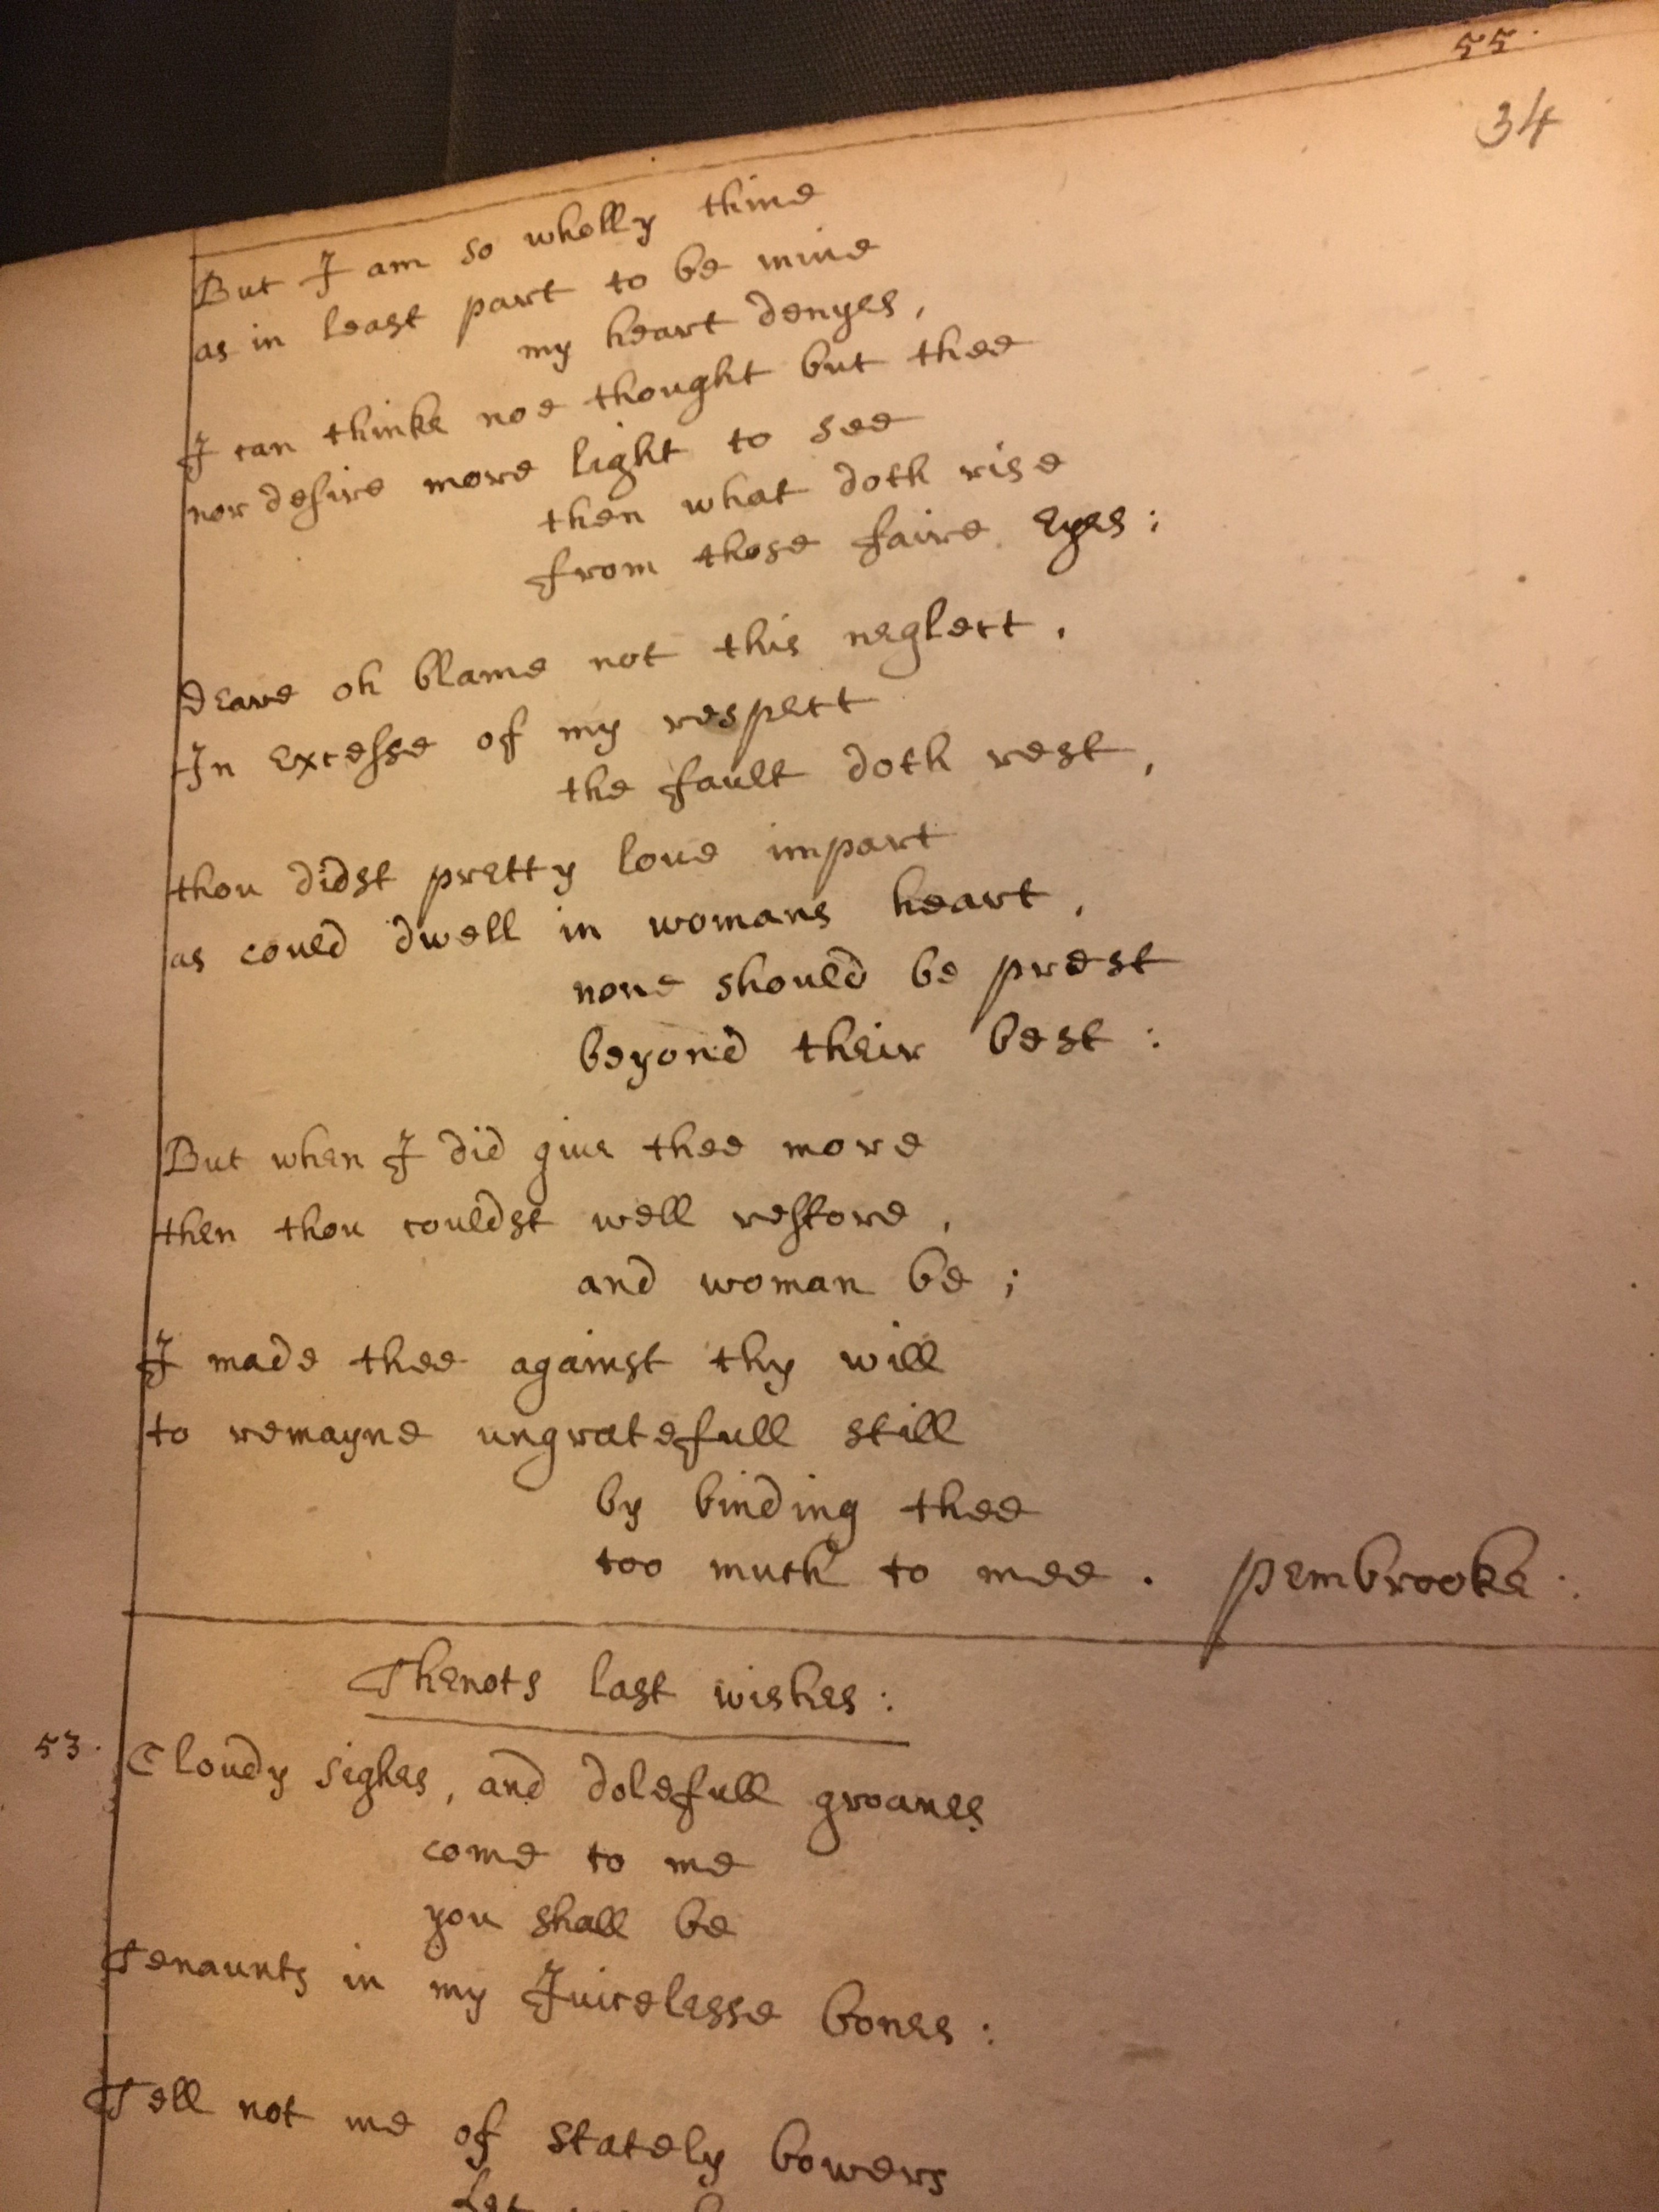 55.
34
But I am so wholly thine
as in least part to be mine
my heart denyes,
I can thinke noe thought but thee
nor desire more light to see
then what doth rise
from those faire eyes:
deare oh blame not this neglect,
In excesse of my respect
the fault doth rest,
thou didst pretty loue impart
as could dwell in womans heart,
none should be prest
beyond their best:
But when I did giue thee more
then thou couldst well restore,
and woman be;
I made thee against thy will
to remayne ungratefull still
by binding thee
too much to mee. pembrooke:
Thenots last wishes:
53. Cloudy sighes, and dolefull groanes
come to me
you shall be
Tenaunts in my Juicelesse bones:
Tell not me of stately bowers